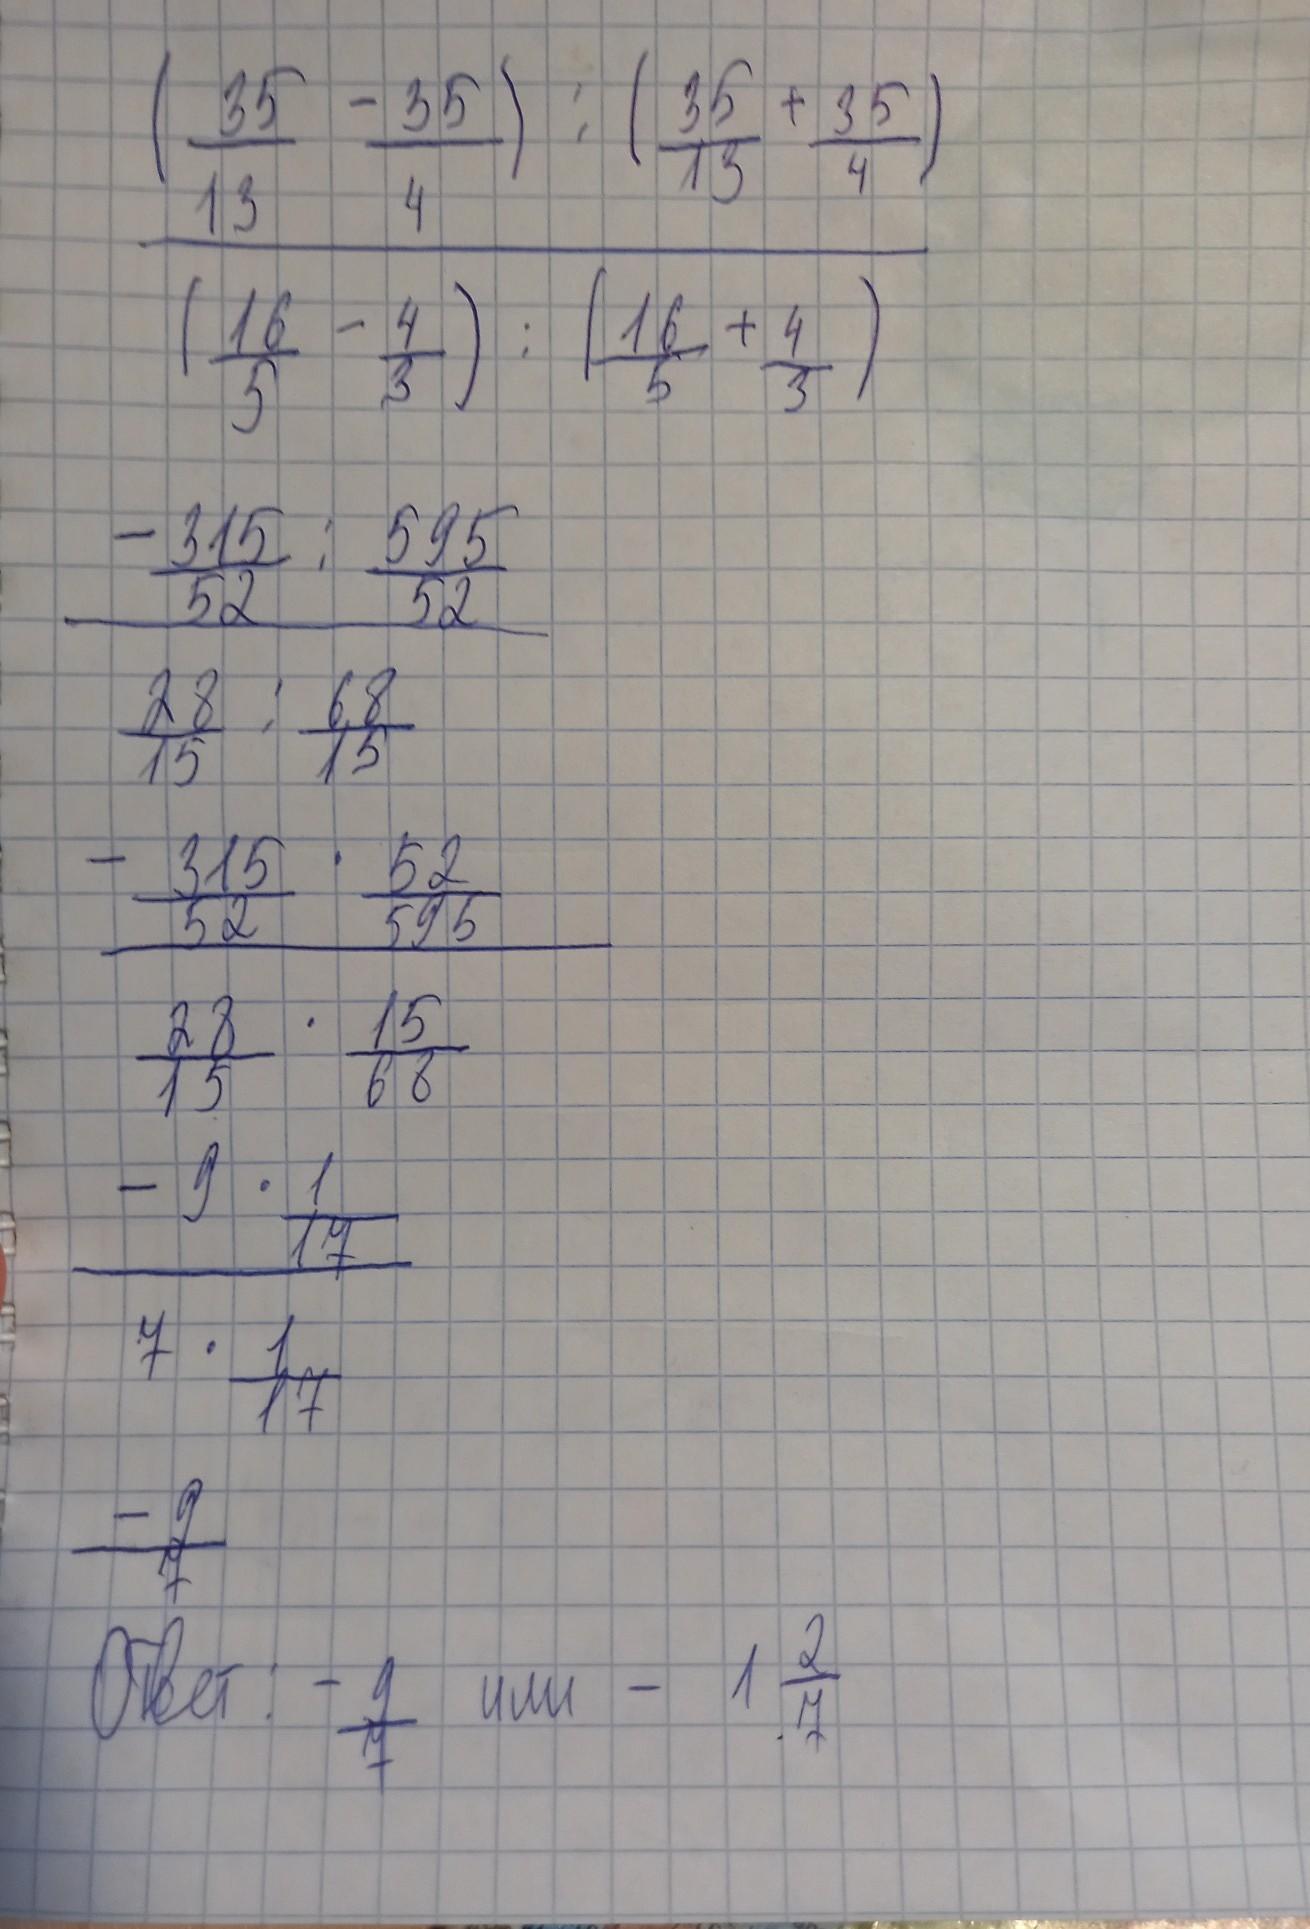 (35/13 - 35/4) : (35/13 + 35/4)
(16/5 - 4/3) : (16/5 + 4/3)
- 315/52 : 595/52
28/15 : 68/15
- 315/52 · 52/595
28/15 · 15/68
- 9 · 1/17
7 · 1/17
- 9/7
Ответ: - 9/7 или - 1 2/7